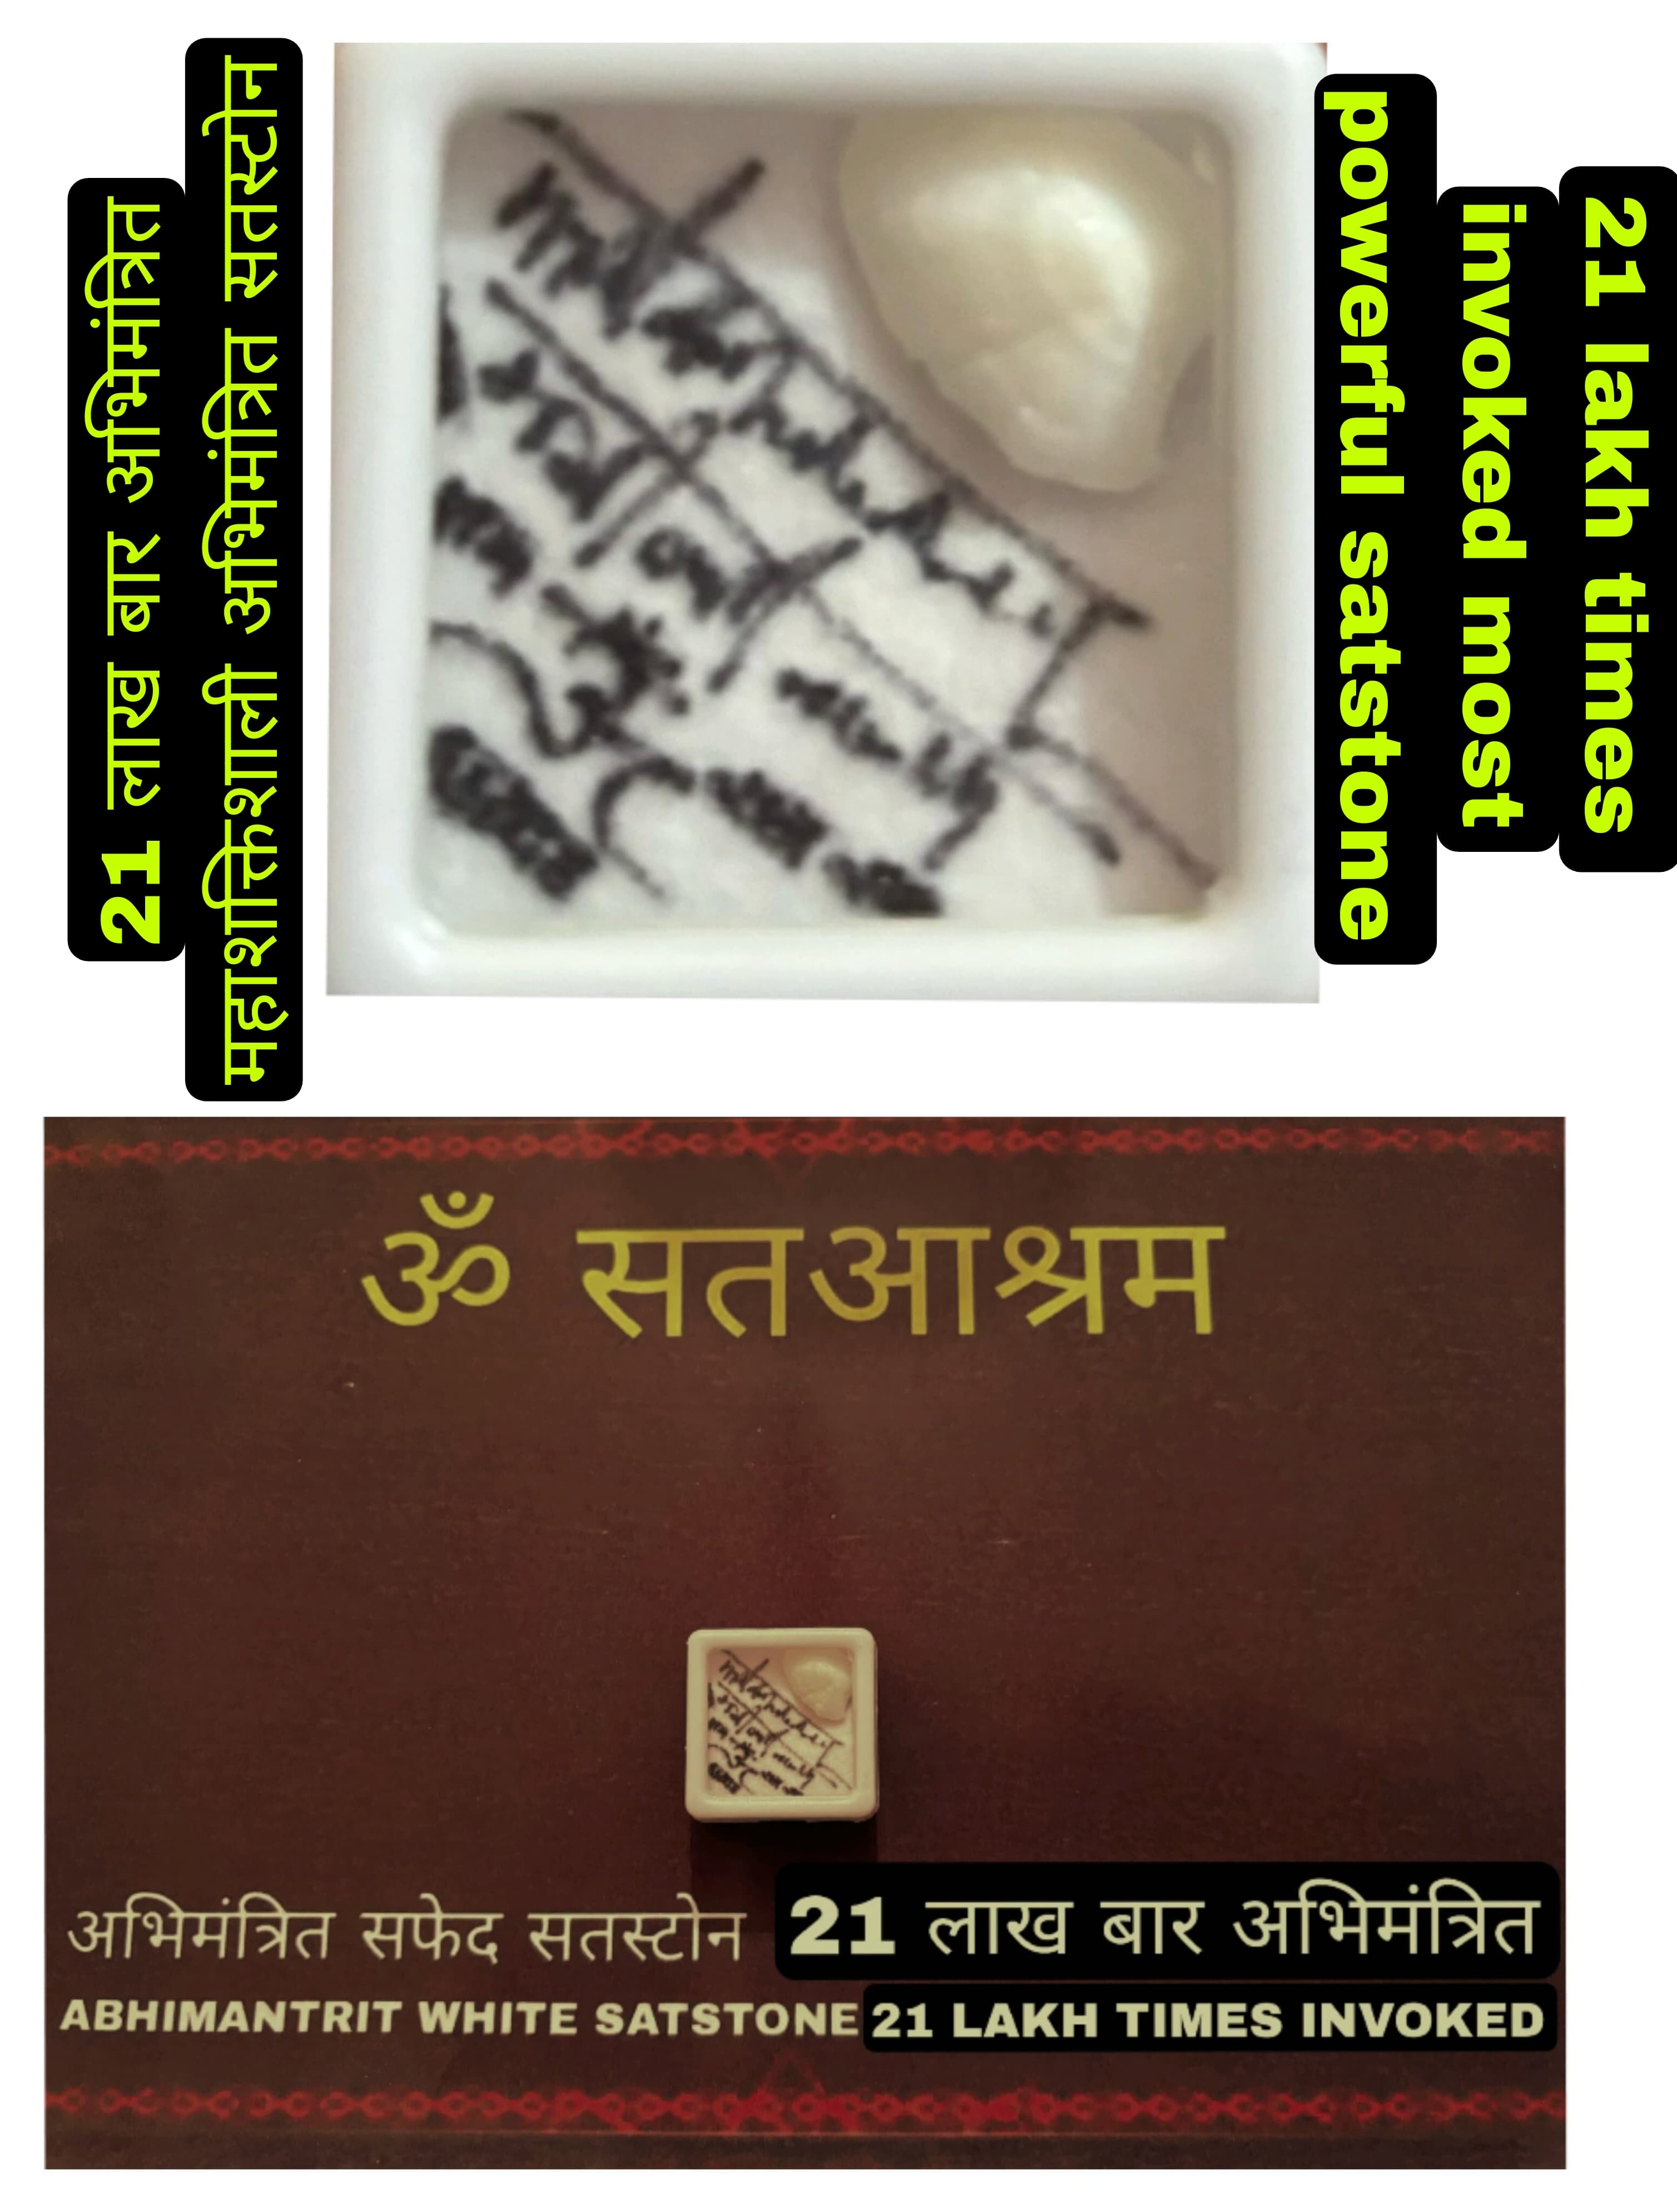 21 लाख बार अभिमंत्रित
महाशक्तिशाली अभिमंत्रित सतस्टोन
21 lakh times
invoked most
powerful satstone
ॐ सतआश्रम
अभिमंत्रित सफेद सतस्टोन 21 लाख बार अभिमंत्रित
ABHIMANTRIT WHITE SATSTONE 21 LAKH TIMES INVOKED